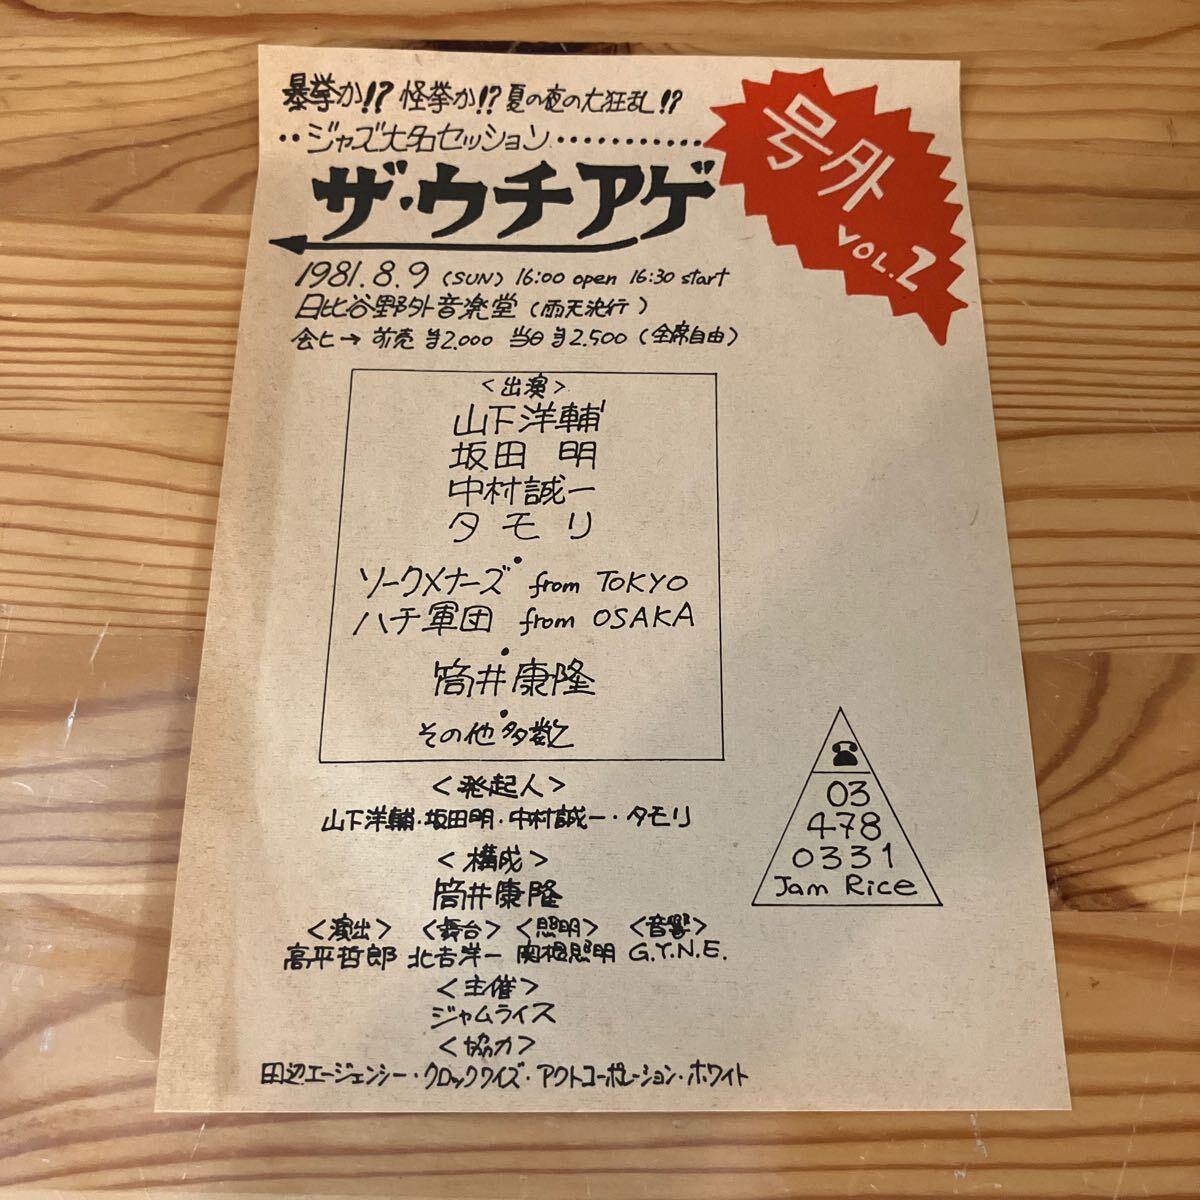 暴挙か!? 怪挙か!? 夏の夜の大狂乱!?
‥ジャズ大名セッション‥‥‥‥‥‥
ザ・ウチアゲ
号外
VOL.2
1981.8.9 (SUN) 16:00 open 16:30 start
日比谷野外音楽堂(雨天決行)
会ヒ→ 前売 ¥2.000 当日 ¥2.500 (全席自由)
<出演>
山下洋輔
坂田 明
中村誠一
タモリ
・
ソークメナーズ from TOKYO
ハチ軍団 from OSAKA
・
筒井康隆
・
その他多数
<発起人>
山下洋輔・坂田明・中村誠一・タモリ
<構成>
筒井康隆
<演出> <舞台> <照明> <音響>
高平哲郎 北吉洋一 関根照明 G.Y.N.E.
<主催>
ジャムライス
<協力>
田辺エージェンシー・クロックワイズ・アクトコーポレーション・ホワイト
☎
03
478
0331
Jam Rice